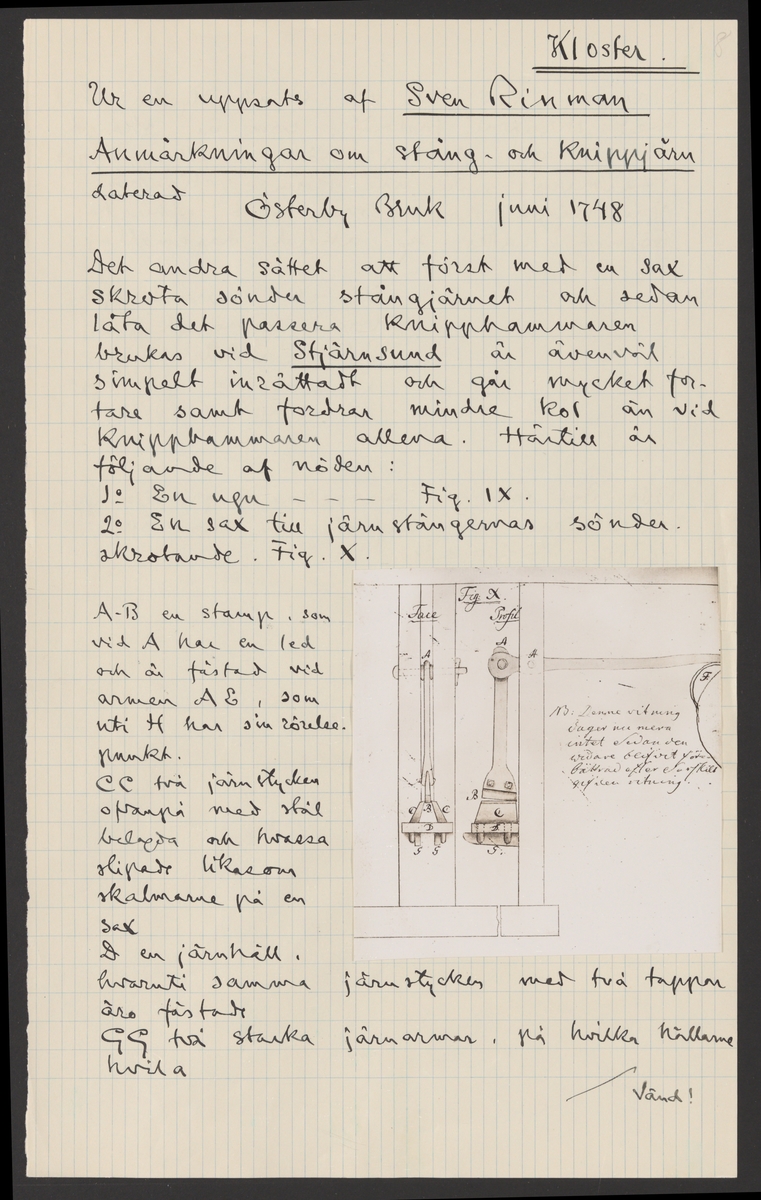 8
Kloster.
Ur en uppsats af Sven Rinman
Anmärkningar om stång- och Knippjärn
daterad Österby Bruk juni 1748
Det andra sättet att först med en sax
skrota sönder stångjärnet och sedan
låta det passera Knipphammaren
brukas vid Stjärnsund är äfvenväl
simpelt inrättadt och går mycket for-
tare samt fordrar mindre kol än vid
Knipphammaren allena. Härtill är
följande af nöden:
1º En ugn - - - Fig. IX.
2º En sax till järnstängernas sönder.
skrotande. Fig. X.
A-B en stamp, som
vid A har en led
och är fästad vid
armen AE, som
uti H har sin rörelse.
punkt.
CC två järnstycken
ofvanpå med stål
belagda och hvassa
slipade likasom
skalmarne på en
sax
D en järnhäll,
hvaruti samma järnstycken med två tappar
äro fästade
GG två starka järnarmar, på hvilka hällarne
hvila
Vänd!
Fig. X.
Face
Profil
A
A
H
F
B
C
B
C
C
D
D
G
G
G
NB: Denne ritning
duger nu mera
intet sedan den
widare blifvit för-
bättrad efter
ritning.